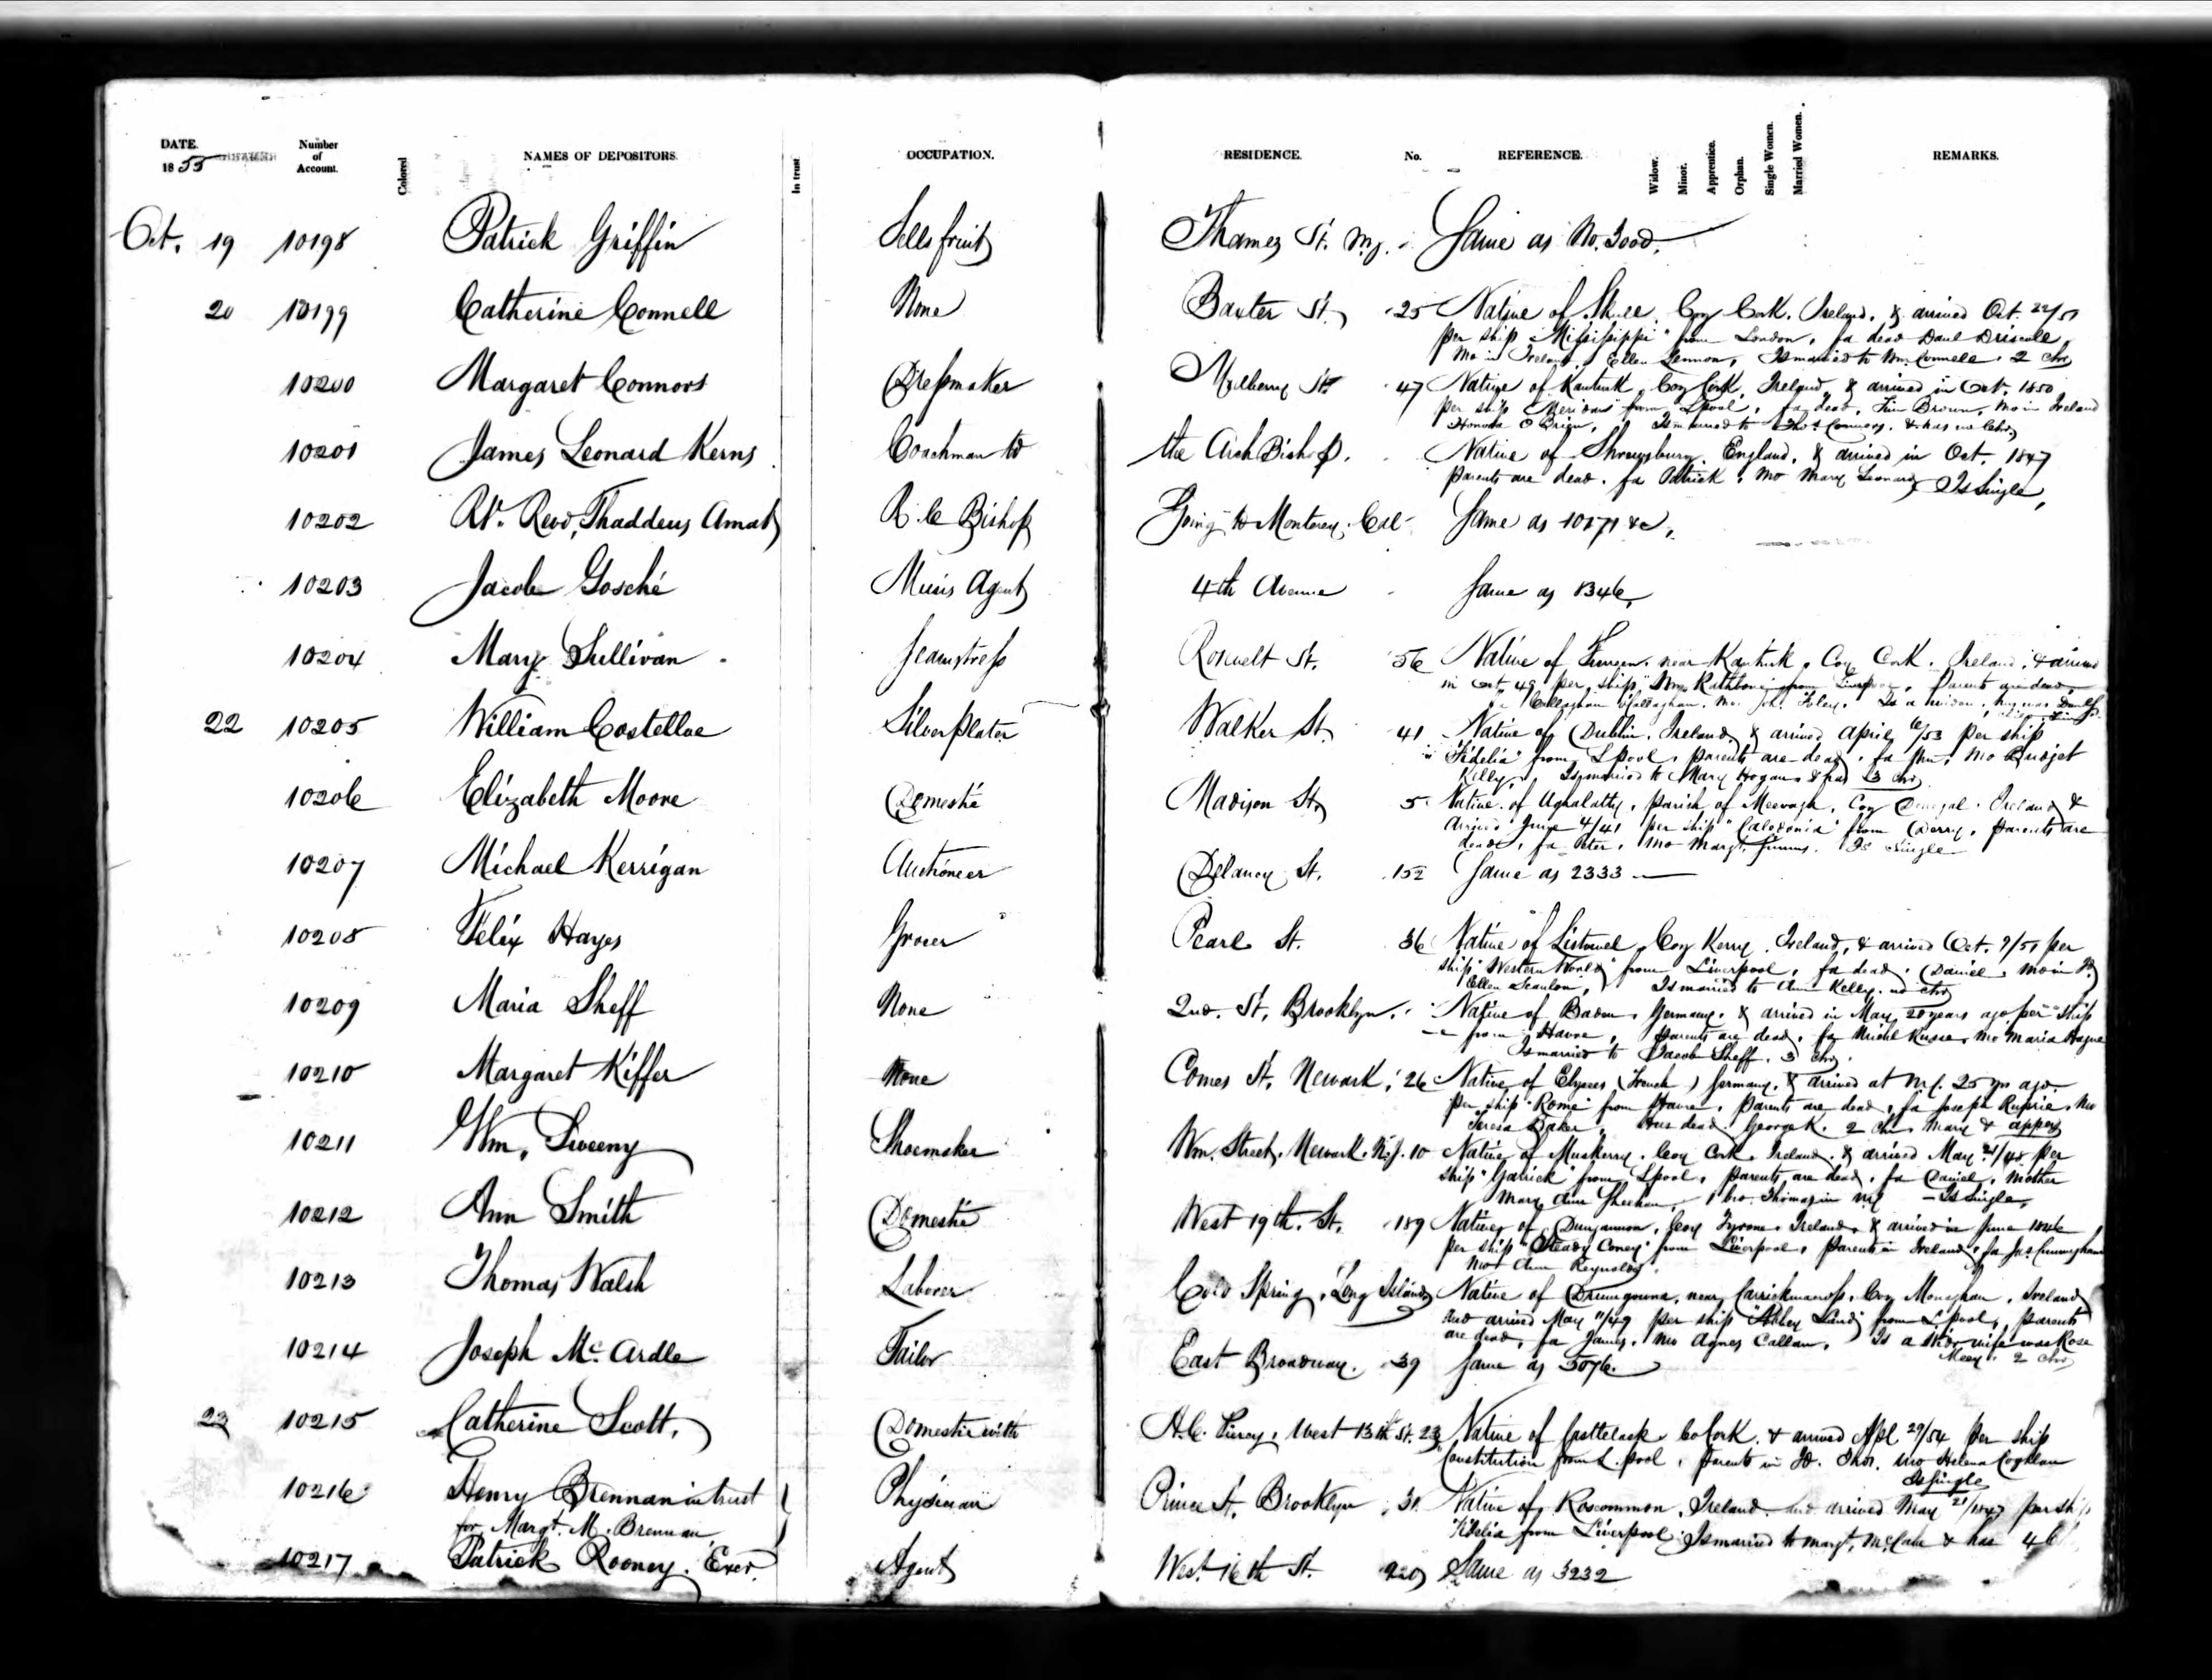 DATE. Number of Account. Colored NAMES OF DEPOSITORS. In trust OCCUPATION. RESIDENCE. No. REFERENCE. Widow. Minor. Apprentice. Orphan. Single Women. Married Women. REMARKS.
1855
Oct. 19 10198 Patrick Griffin Sells fruit Thames St. N.Y. Same as No.
20 10199 Catherine Connell None Baxter St. 25 Native of Coy Cork, Ireland, & arrived Oct. 22/51
per ship "Mississippi" from London, fa dead Danl Driscoll,
Mo in Ireland, Ellen Lennon, Is married to Wm. Connell. 2 chn
10200 Margaret Connors Dressmaker Mulberry St. 47 Native of Kanturk, Coy Cork, Ireland, & arrived in Oct. 1850
per ship from Lpool, fa dead, Tim Brown, Mo in Ireland
Honora O'Brien, Is married to Thos Connors. & has no chn
10201 James Leonard Kerns Coachman to the Arch Bishop. Native of Shrewsbury, England, & arrived in Oct. 1847
parents are dead. fa Patrick, Mo Mary Leonard, Is Single,
10202 Rt. Revd. Thaddeus Amat R. C Bishop Going to Monterey. Cal Same as 10171 &c,
10203 Jacob Gosché Music Agent 4th Avenue Same as 1346,
10204 Mary Sullivan Seamstress Rosevelt St. 56 Native of near Kanturk, Coy Cork. Ireland. & arrived
in Oct 49 per ship "Wm. Rathbone" from Liverpool, Parents are dead,
fa Callaghan O'Callaghan, Mo. Joh. Foley. Is a widow,
22 10205 William Costelloe Silver plater Walker St. 41 Native of Dublin, Ireland & arrived April 6/53 per ship
"Fidelia" from Lpool, parents are dead, fa Wm, Mo Bridget
Kelly, Is married to Mary Hogan & has 3 chn
10206 Elizabeth Moore Domestic Madison St. 5 Native of Aghalatty, parish of Meevagh, Coy Donegal. Ireland &
arrived June 4/41 per ship "Caledonia" from Derry, parents are
dead, fa Peter, Mo Margt. Is Single
10207 Michael Kerrigan Auctioneer Delancy St. 152 Same as 2333
10208 Felix Hayes Grocer Pearl St. 36 Native of Listowel, Coy Kerry, Ireland, & arrived Oct. 9/51 per
ship "Western World" from Liverpool, fa dead, Daniel, mo in
Ellen Scanlon, Is married to Ann Kelly. no chn
10209 Maria Sheff None 2nd. St, Brooklyn. Native of Baden, Germany, & arrived in May 20 years ago per ship
— from Havre, Parents are dead. fa Michl Mo Maria
Is married to Jacob Sheff. 3 chn.
10210 Margaret Kiffer None Comes St, Newark, 26 Native of Elysses (French) Germany, & arrived at N.Y. 25 yrs ago
per ship "Rome" from Havre, parents are dead, fa Joseph Ruprie, Mo
Teresa Baker, Hus dead. George K. 2 chn Mary &
10211 Wm. Sweeny Shoemaker Wm. Street, Newark. N.J. 10 Native of Muskerry, Coy Cork, Ireland, & arrived May 21/48 per
ship "Garrick" from Lpool, parents are dead, fa Daniel, mother
Mary Ann Sheehan, 1 bro. Thomas in N.Y – Is Single,
10212 Ann Smith Domestic West 19th. St. 189 Native of Dungannon, Coy Tyrone, Ireland, & arrived in June 1846
per ship from Liverpool, parents in Ireland, fa Jas. Cunningham
Mo Ann Reynolds.
10213 Thomas Walsh Laborer Cold Spring, Long Island Native of near Carrickmacross, Coy Monaghan, Ireland
and arrived May 11/49 per ship from Lpool, parents
are dead, fa James, Mo Agnes Callan, Is a Widr wife was Rose
2 chn
10214 Joseph McArdle Tailor East Broadway. 39 Same as 5076.
23 10215 Catherine Scott, Domestic with West 13th St. 23 Native of Co Cork. & arrived Apl 29/54 per ship
Constitution from L.pool, parents in Id. Thos. Mo Helena Coghlan
Is Single
10216 Henry Brennan in trust Physician Prince St, Brooklyn 31 Native of Roscommon, Ireland and arrived May 21/1847 per ship
for Margt. M. Brennan "Fidelia from Liverpool. Is married to Margt. & has 4
10217 Patrick Rooney. Exer. Agent West 16th St. 220 Same as 3232